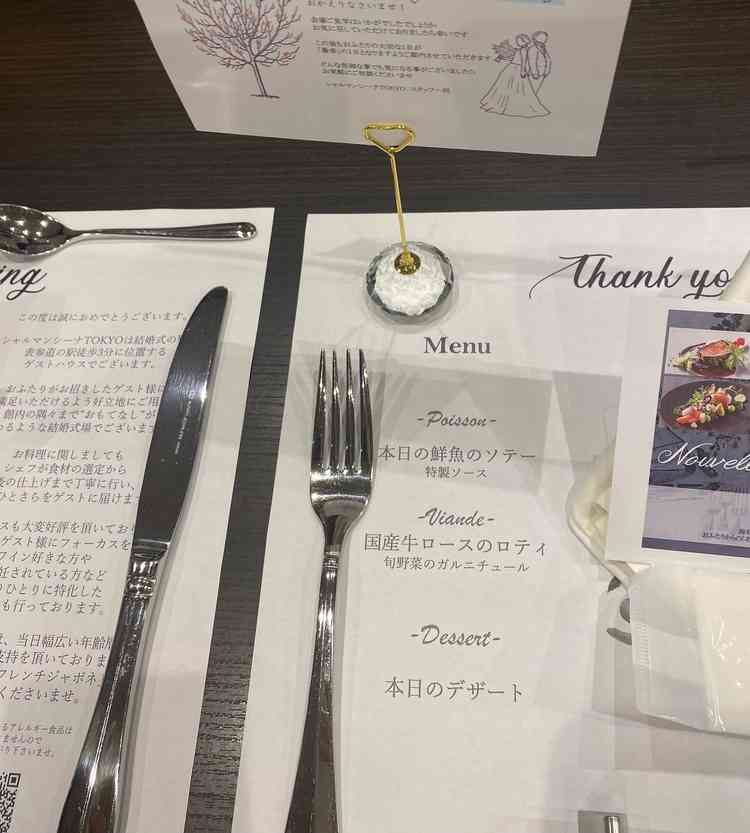 おかえりなさいませ！
会場ご見学はいかがでしたでしょうか
お気に召していただけておりましたら幸いです
どんな些細な事でも気になる事がございましたら
お気軽にご相談くださいませ
シャルマンシーナTOKYO スタッフ一同
ing
この度は誠におめでとうございます。
シャルマンシーナTOKYOは結婚式の
表参道の駅徒歩3分に位置する
ゲストハウスでございます。
おふたりがお招きしたゲスト様に
満足いただけるよう好立地にご用
館内の隅々まで"おもてなし"が
わるような結婚式場でございます
お料理に関しましても
シェフが食材の選定から
後の仕上げまで丁寧に行い、
ひとさらをゲストに届けます
スも大変好評を頂いており
ゲスト様にフォーカスを
ワイン好きな方や
妊されている方など
りひとりに特化した
も行っております。
、当日幅広い年齢層
支持を頂いておりま
フレンチジャポネ
くださいませ。
るアレルギー食品は
ませんので
下さいませ。
Thank yo
Menu
-Poisson-
本日の鮮魚のソテー
特製ソース
-Viande-
国産牛ロースのロティ
旬野菜のガルニチュール
-Dessert-
本日のデザート
Nouvel